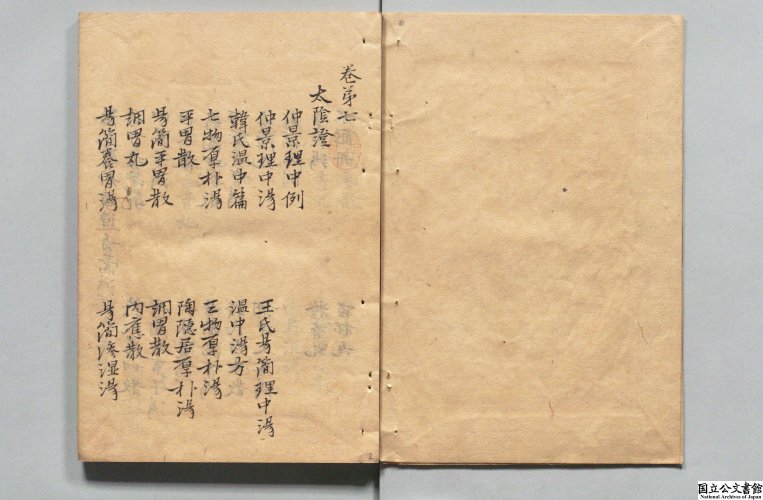 卷第七
太陰證
仲景理中例
仲景理中湯 王氏易簡理中湯
韓氏温中篇 温中湯方
七物厚朴湯 三物厚朴湯
平胃散 陶隱居厚朴湯
易簡平胃散 調胃散
調胃丸 丙應散
易簡養胃湯 易簡滲湿湯
2
国立公文書館
National Archives of Japan